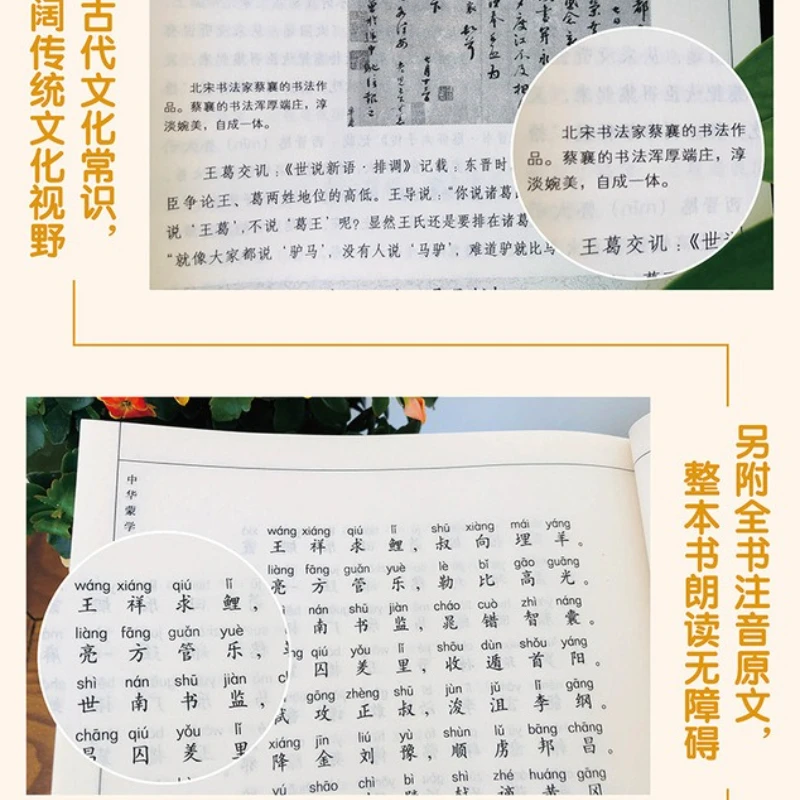 古代文化常识，
阔传统文化视野
北宋书法家蔡襄的书法作
品。蔡襄的书法浑厚端庄，淳
淡婉美，自成一体。
王葛交讥：《世说新语·排调》记载：东晋时
臣争论王、葛两姓地位的高低。王导说：“你说诸葛
说‘王葛’，不说‘葛王’呢？显然王氏还是要排在诸葛
“就像大家都说‘驴马’，没有人说‘马驴’，难道驴就比马
北宋书法家蔡襄的书法作
品。蔡襄的书法浑厚端庄，淳
淡婉美，自成一体。
王葛交讥：《世
另附全书注音原文，
整本书朗读无障碍
中华蒙学
wáng xiáng qiú lǐ shū xiàng mái yáng
王祥求鲤，叔向埋羊。
liàng fāng guǎn yuè lè bǐ gāo guāng
亮方管乐，勒比高光。
nán shū jiàn cháo cuò zhì náng
南书监，晁错智囊。
qiú yǒu lǐ shōu dùn shǒu yáng
囚羑里，收遁首阳。
gōng zhèng shū jùn jǔ lǐ gāng
攻正叔，浚沮李纲。
xiáng jīn liú yù shùn lǔ bāng chāng
降金刘豫，顺虏邦昌。
yú shāo chì bì shì zhé huáng gāng
wáng xiáng qiú lǐ
王祥求鲤，
liàng fāng guǎn yuè
亮方管乐，
shì nán shū jiàn
世南书监，
chāng qiú yǒu lǐ
昌囚羑里